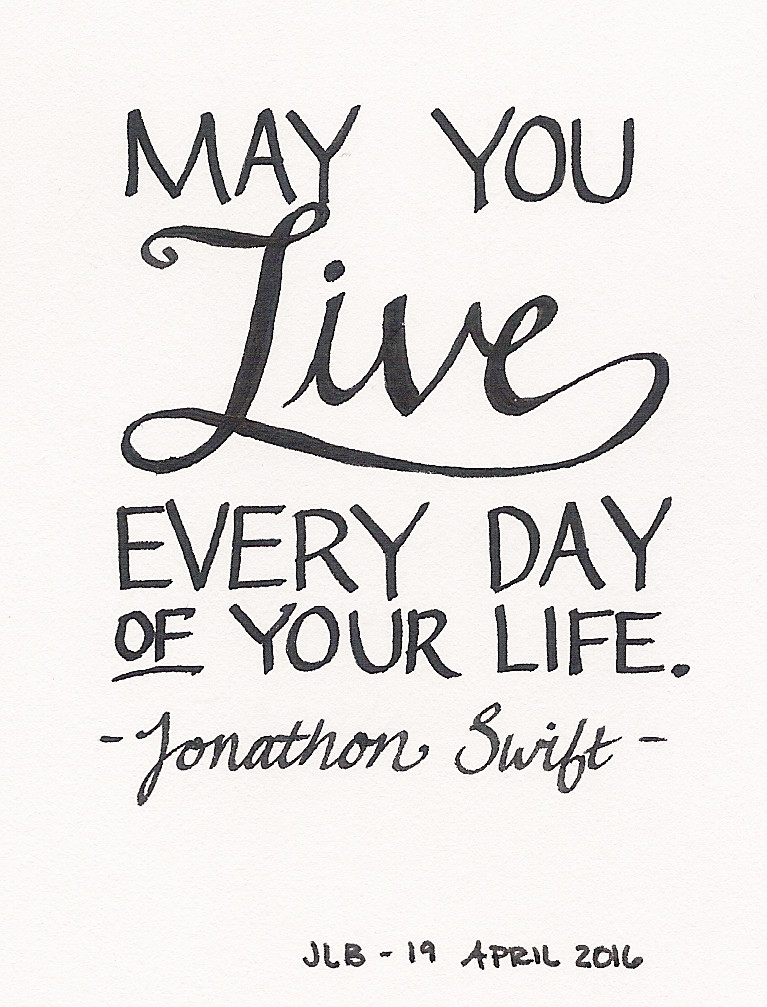 MAY YOU
Live
EVERY DAY
OF YOUR LIFE.
- Jonathon Swift -
JLB - 19 APRIL 2016